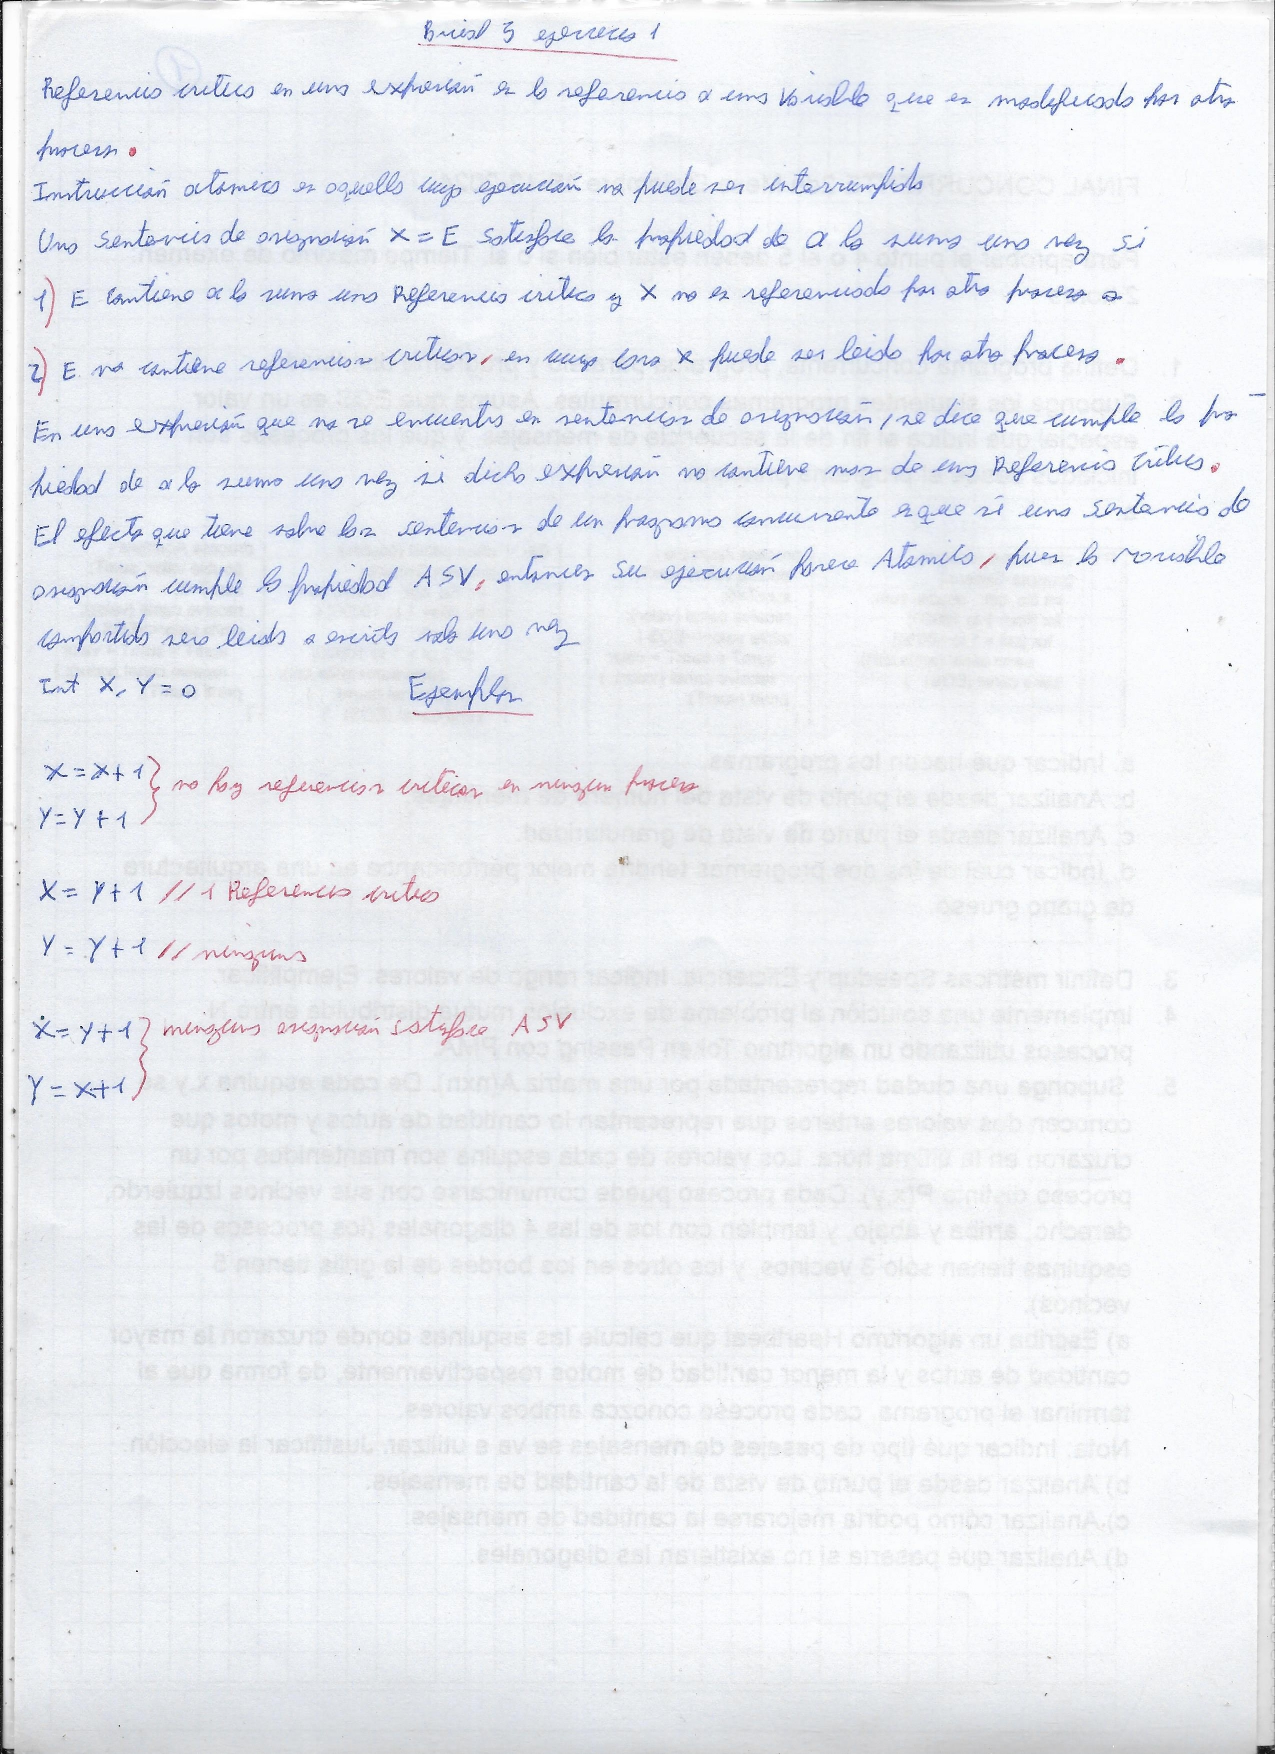 ejercicio 1
Referencia critica en una expresión es la referencia a una Variable que es modificada por otro
proceso.
Instrucción atomica es aquella cuya ejecución no puede ser interrumpida
Una Sentencia de asignación X = E Satisface la propiedad de a lo sumo una vez si
1) E contiene a lo sumo una Referencia critica y X no es referenciada por otro proceso o
2) E no contiene referencias criticas, en cuyo caso X puede ser leida por otro proceso.
En una expresión que no se encuentra en sentencias de asignación, se dice que cumple la pro-
piedad de a lo sumo una vez si dicha expresión no contiene mas de una Referencia Critica.
El efecto que tiene sobre las sentencias de un programa concurrente es que si una Sentencia de
asignación cumple la propiedad ASV, entonces su ejecución parece Atomica, pues la variable
compartida sera leida o escrita solo una vez
Int X, Y = 0 Ejemplos
X = X + 1 } no hay referencias criticas en ningun proceso
Y = Y + 1
X = Y + 1 // 1 Referencia critica
Y = Y + 1 // ninguna
X = Y + 1 } ninguna asignación satisface ASV
Y = X + 1